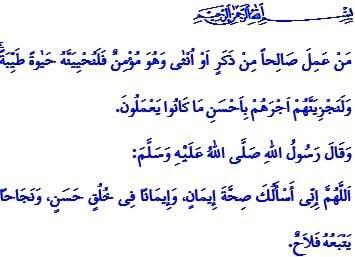 بِسْمِ اللهِ الرَّحْمٰنِ الرَّحِيمِ
مَنْ عَمِلَ صَالِحاً مِنْ ذَكَرٍ اَوْ اُنْثٰى وَهُوَ مُؤْمِنٌ فَلَنُحْيِيَنَّهُ حَيٰوةً طَيِّبَةًۚ
وَلَنَجْزِيَنَّهُمْ اَجْرَهُمْ بِاَحْسَنِ مَا كَانُوا يَعْمَلُونَ.
وَقَالَ رَسُولُ اللهِ صَلَّى اللهُ عَلَيْهِ وَسَلَّمَ:
اَللّٰهُمَّ اِنِّى اَسْأَلُكَ صِحَّةَ اِيمَانٍ، وَاِيمَانًا فِى خُلُقٍ حَسَنٍ، وَنَجَاحاً
يَتْبَعُهُ فَلَاحٌ.